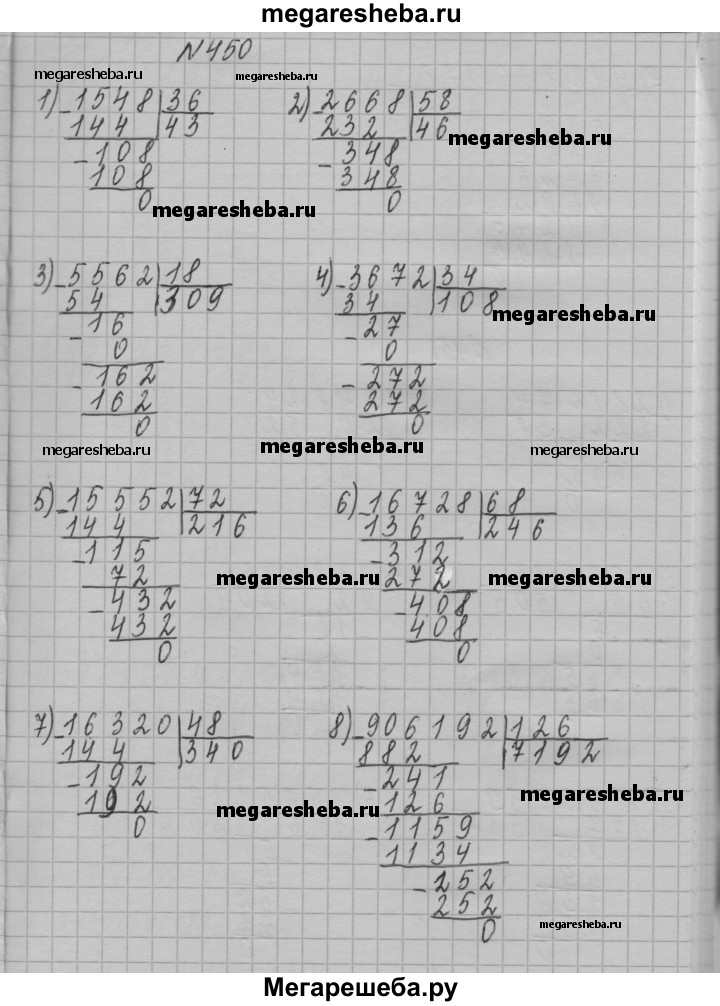 megaresheba.ru
№450
megaresheba.ru megaresheba.ru
1) -1548 |36 2) -2668 |58
144 43 232 46
megaresheba.ru
-108 -348
108 348
0 0
megaresheba.ru
3) -5562 |18 4) -3672 |34
54 309 34 108
megaresheba.ru
-16 -27
0 0
-162 -272
162 272
0 0
megaresheba.ru megaresheba.ru megaresheba.ru
5) -15552 |72 6) -16728 |68
144 216 136 246
-115 -312
72 272
megaresheba.ru megaresheba.ru
-432 -408
432 408
0 0
7) -16320 |48 8) -906192 |126
144 340 882 7192
-192 -241
192 126
megaresheba.ru megaresheba.ru
0 -1159
1134
-252
252
0
megaresheba.ru
Мегарешеба.ру